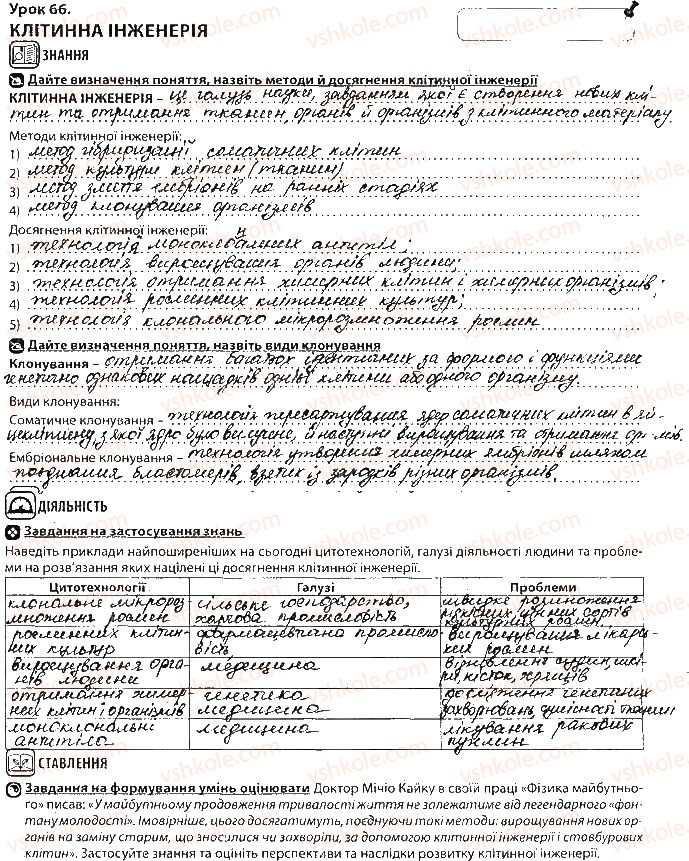 Урок 66.
КЛІТИННА ІНЖЕНЕРІЯ
ЗНАННЯ
Дайте визначення поняття, назвіть методи й досягнення клітинної інженерії
КЛІТИННА ІНЖЕНЕРІЯ – це галузь науки, завданням якої є створення нових клі-
тин та отримання тканин, органів й організмів з клітинного матеріалу.
Методи клітинної інженерії:
1) метод гібридизації соматичних клітин
2) метод культури клітин (тканин)
3) метод злиття ембріонів на ранніх стадіях
4) метод клонування організмів
Досягнення клітинної інженерії:
1) технологія моноклональних антитіл;
2) технологія вирощування органів людини;
3) технологія отримання химерних клітин і химерних організмів;
4) технологія рослинних клітинних культур;
5) технологія клонального мікророзмноження рослин
Дайте визначення поняття, назвіть види клонування
Клонування – отримання багатьох ідентичних за формою і функціями
генетично однакових нащадків однієї клітини або одного організму.
Види клонування:
Соматичне клонування – технологія пересаджування ядер соматичних клітин в яй-
цеклітину, з якої ядро було вилучене, й наступне вирощування та отримання орг-мів.
Ембріональне клонування – технологія утворення химерних ембріонів шляхом
поєднання бластомерів, взятих із зародків різних організмів.
ДІЯЛЬНІСТЬ
Завдання на застосування знань
Наведіть приклади найпоширеніших на сьогодні цитотехнологій, галузі діяльності людини та пробле-
ми на розв'язання яких націлені ці досягнення клітинної інженерії.
Цитотехнології Галузі Проблеми
клональне мікророз- сільське господарство, швидке розмноження
множення рослин харчова промисловість рідкісних, цінних сортів
культурних рослин
рослинних клітин- фармацевтична промисло- вирощування лікарсь-
них культур вість ких рослин
вирощування орга- медицина відновлення судин, шкі-
нів людини ри, кісток, хрящів
отримання химер- генетика дослідження генетичних
них клітин і організмів медицина захворювань, сумісності тканин
моноклональні медицина лікування ракових
антитіла пухлин
СТАВЛЕННЯ
Завдання на формування умінь оцінювати Доктор Мічіо Кайку в своїй праці «Фізика майбутньо-
го» писав: «У майбутньому продовження тривалості життя не залежатиме від легендарного «фон-
тану молодості». Імовірніше, цього досягатимуть, поєднуючи такі методи: вирощування нових ор-
ганів на заміну старим, що зносилися чи захворіли, за допомогою клітинної інженерії і стовбурових
клітин». Застосуйте знання та оцініть перспективи та наслідки розвитку клітинної інженерії.
vshkole.com